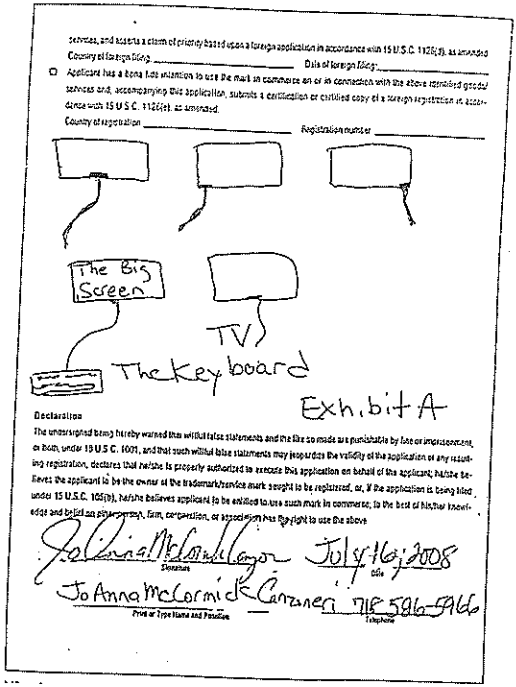 services, and asserts a claim of priority based upon a foreign application in accordance with 15 U.S.C. 1126(d), as amended
Country of foreign filing: Date of foreign filing:
Applicant has a bona fide intention to use the mark in commerce on or in connection with the above identified goods/
services and, accompanying this application, submits a certification or certified copy of a foreign registration in accor-
dance with 15 U.S.C. 1126(e), as amended.
Country of registration Registration number
The Big
Screen
TV
The Keyboard
Exhibit A
Declaration
The undersigned being hereby warned that willful false statements and the like so made are punishable by fine or imprisonment,
or both, under 18 U.S.C. 1001, and that such willful false statements may jeopardize the validity of the application or any result-
ing registration, declares that he/she is properly authorized to execute this application on behalf of the applicant; he/she be-
lieves the applicant to be the owner of the trademark/service mark sought to be registered, or, if the application is being filed
under 15 U.S.C. 105(b), he/she believes applicant to be entitled to use such mark in commerce; to the best of his/her knowl-
edge and belief no other person, firm, corporation, or association has the right to use the above
July 16, 2008
Signature Date
JoAnna McCormick Canzoneri 718 596-5966
Print or Type Name and Position Telephone